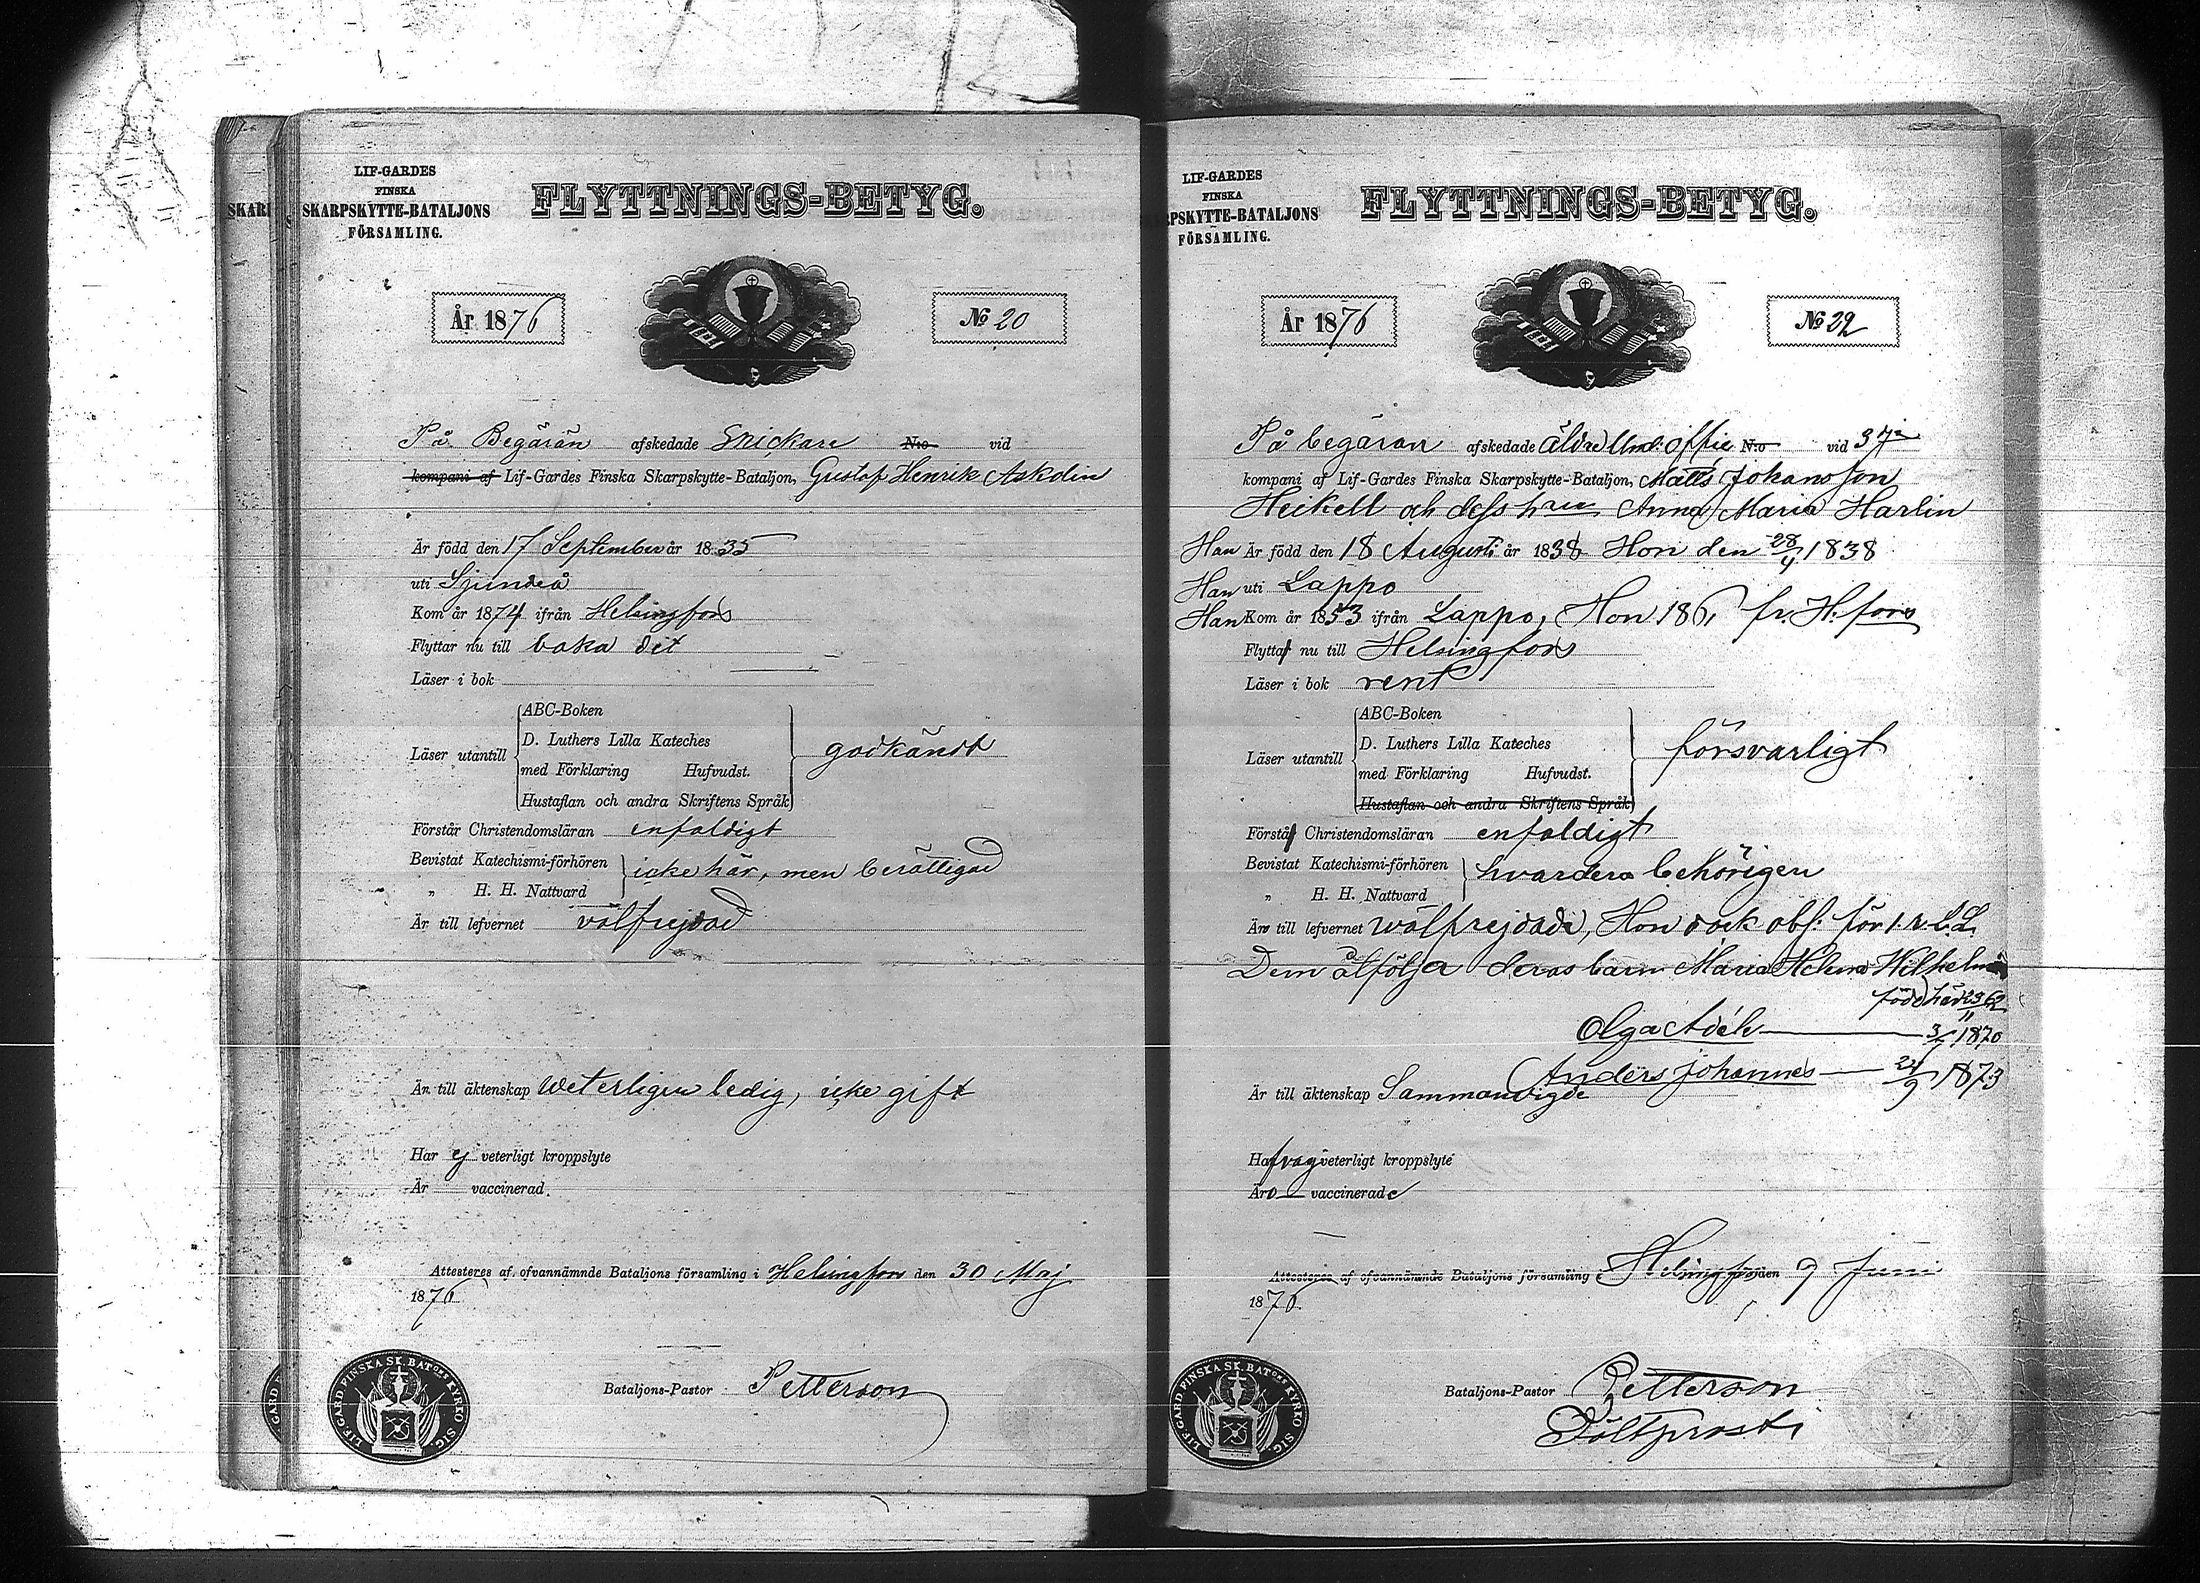 SKARP
LIF-GARDES
FINSKA
SKARPSKYTTE-BATALJONS
FÖRSAMLING.
FLYTTNINGS-BETYG.
År 1876
No 20
På Begäran afskedade Snickare N:o vid
kompani af Lif-Gardes Finska Skarpskytte-Bataljon, Gustaf Henrik Askolin
Är född den 17 September år 1835
uti Sjundeå
Kom år 1874 ifrån Helsingfors
Flyttar nu till baka dit
Läser i bok
Läser utantill
ABC-Boken
D. Luthers Lilla Kateches
med Förklaring Hufvudst.
Hustaflan och andra Skriftens Språk
godkändt
Förstår Christendomsläran enfaldigt
Bevistat Katechismi-förhören
" H. H. Nattvard
icke här, men berättigad
Är till lefvernet välfrejdad
Är till äktenskap Weterligen ledig, icke gift
Har ej veterligt kroppslyte
Är vaccinerad.
Attesteras af ofvannämnde Bataljons församling i Helsingfors den 30 Maj
1876.
Bataljons-Pastor Petterson
LIF. GARD FINSKA SK. BATONS KYRKO SIG.
LIF-GARDES
FINSKA
RPSKYTTE-BATALJONS
FÖRSAMLING.
FLYTTNINGS-BETYG.
År 1876
No 22
På begäran afskedade äldre Und: offic N:o vid 3je
kompani af Lif-Gardes Finska Skarpskytte-Bataljon, Matts Johansson
Heikell och dess hru Anna Maria Harlin
Han Är född den 18 Augusti år 1838 Hon den 28/4 1838
Han uti Lappo
Han Kom år 1853 ifrån Lappo, Hon 1861 fr. H:fors
Flytta nu till Helsingfors
Läser i bok rent
Läser utantill
ABC-Boken
D. Luthers Lilla Kateches
med Förklaring Hufvudst.
Hustaflan och andra Skriftens Språk
försvarligt
Förstå Christendomsläran enfaldigt
Bevistat Katechismi-förhören
" H. H. Nattvard
hvardera behörigen
Äro till lefvernet wälfrejdade, Hon dock abs: för l. r. l. L.
Dem åtfölja deras barn Maria Helena Wilhelmina
född här 23/11 62
Olga Adéle 1870
Anders Johannes 24/9 1873
Är till äktenskap Sammanvigde
Hafva ej veterligt kroppslyte
Äro vaccinerade
Attesteras af ofvannämnde Bataljons församling i Helsingfors den 9 Juni
1876.
Bataljons-Pastor Petterson
Fältprost
LIF. GARD FINSKA SK. BATONS KYRKO SIG.